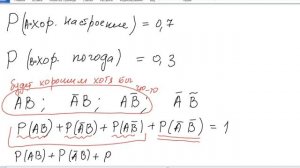 P(A=хор. настроение) = 0,7
P(B=хор. погода) = 0,3
будет хорошим хотя бы что-то
AB; A̅B; AB̅; A̅ B̅
P(AB)+P(A̅B)+P(AB̅)+P(A̅ B̅) = 1
P(AB)+P(A̅B)+P